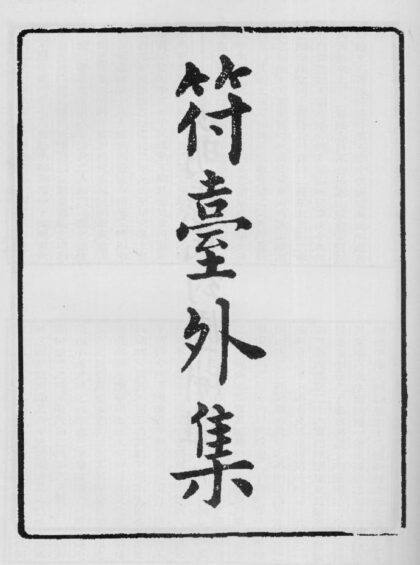 符臺外集